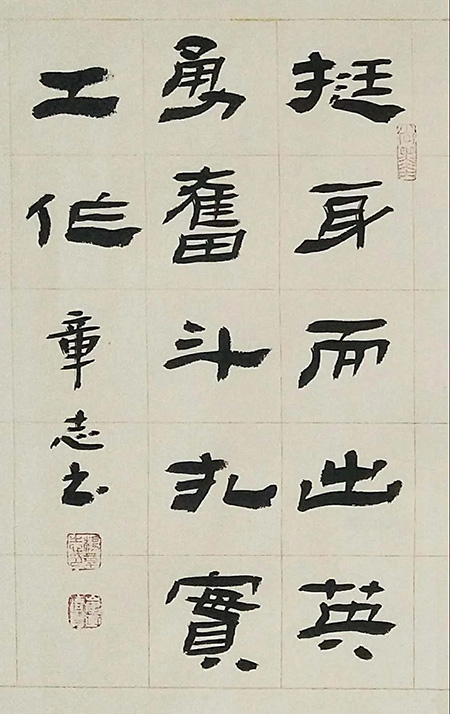 挺身而出英
勇奮斗扎實
工作
章志书